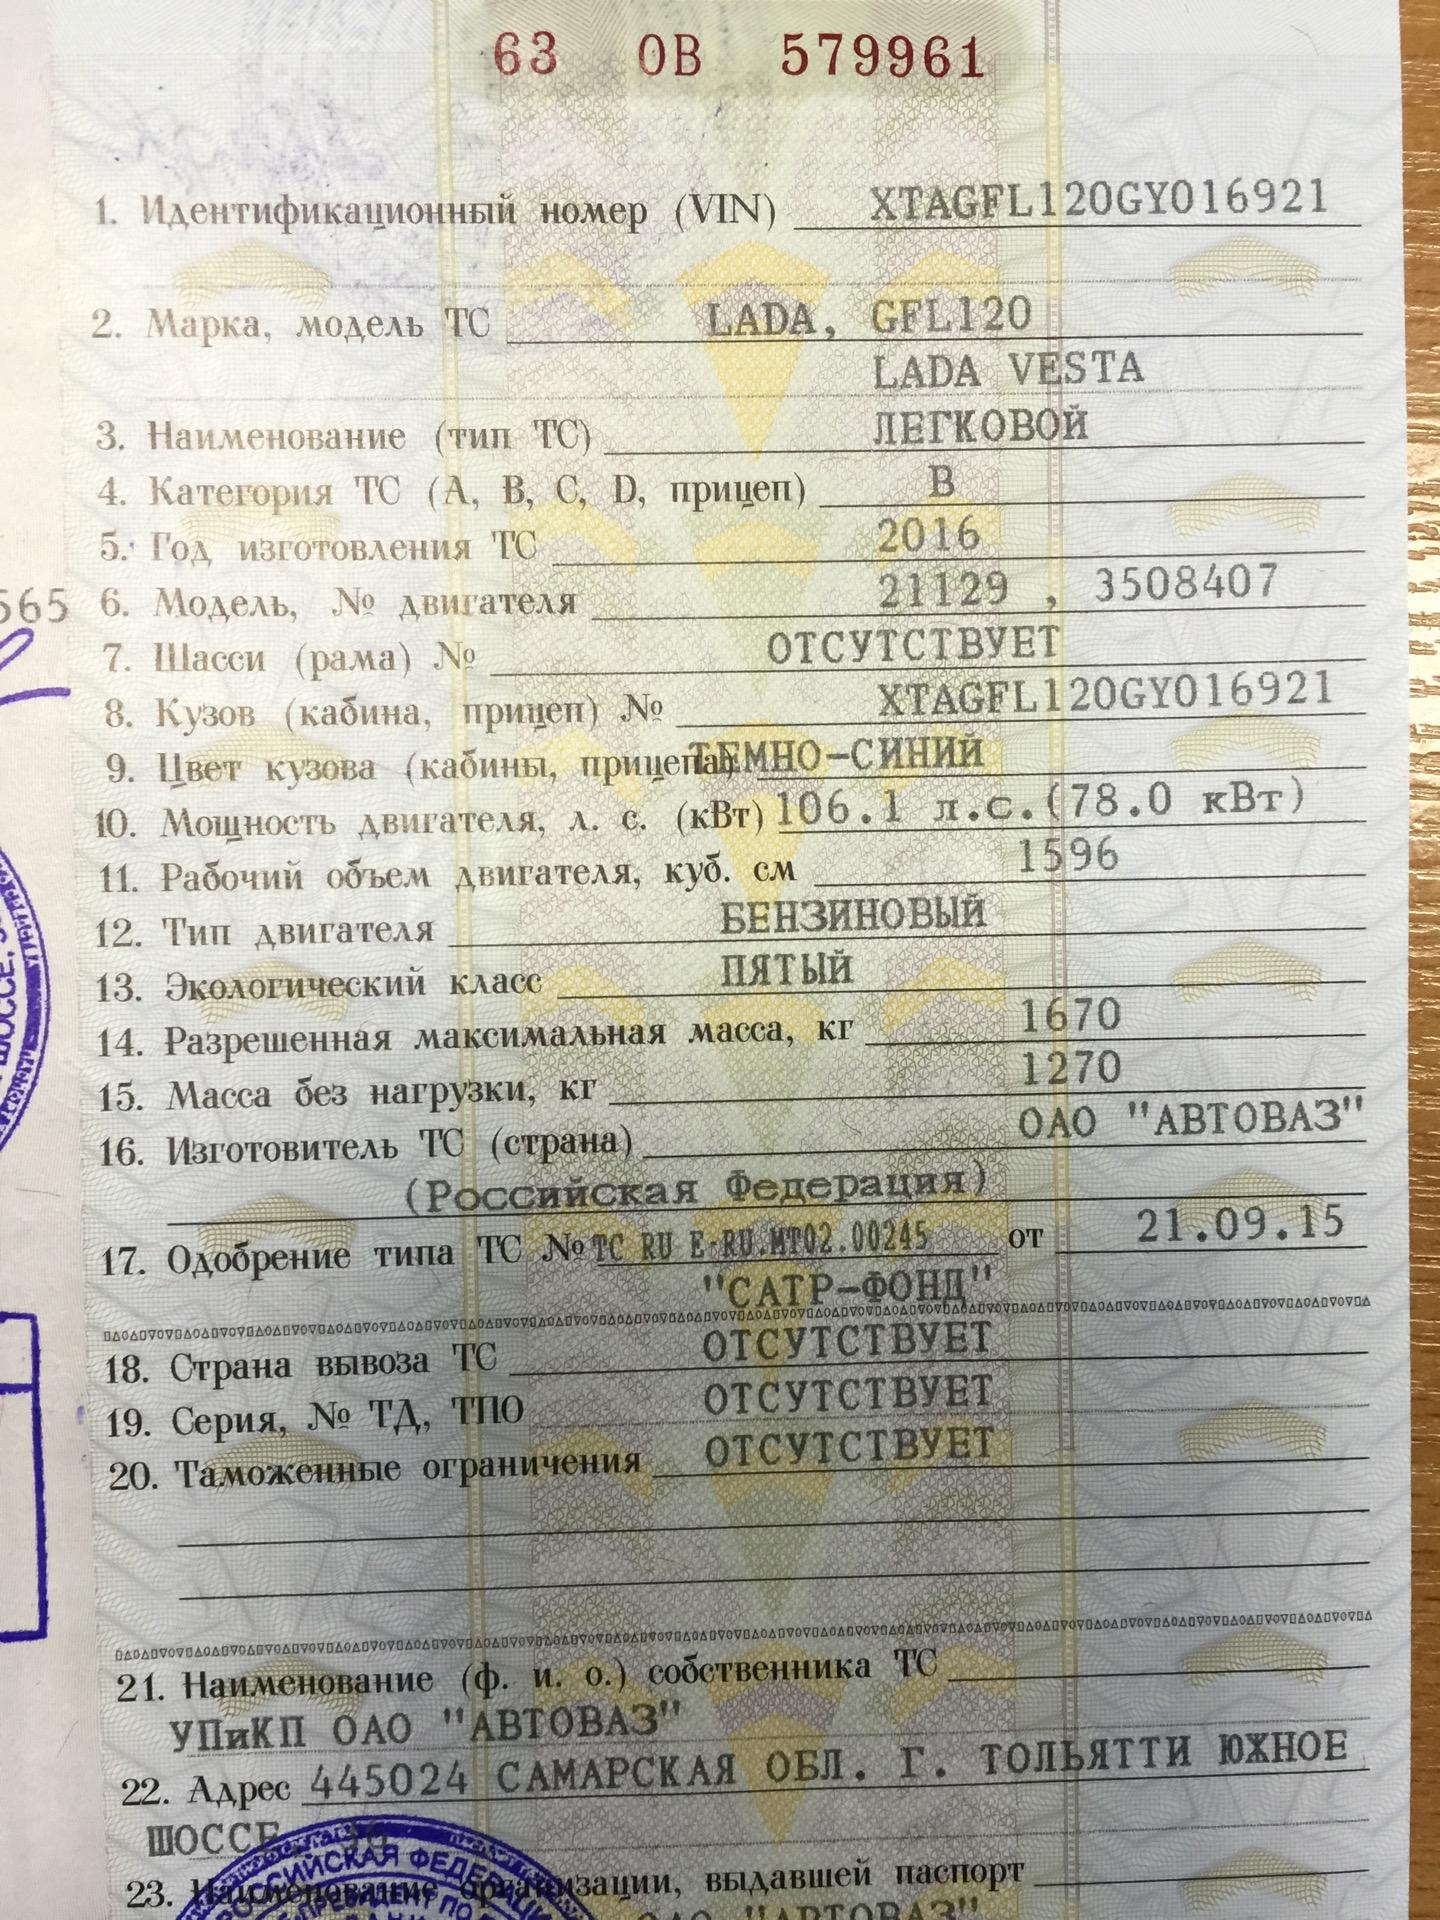 63 ОВ 579961
1. Идентификационный номер (VIN) XTAGFL120GY016921
2. Марка, модель ТС LADA, GFL120
LADA VESTA
3. Наименование (тип ТС) ЛЕГКОВОЙ
4. Категория ТС (А, В, С, D, прицеп) В
5. Год изготовления ТС 2016
565 6. Модель, № двигателя 21129 , 3508407
7. Шасси (рама) № ОТСУТСТВУЕТ
8. Кузов (кабина, прицеп) № XTAGFL120GY016921
9. Цвет кузова (кабины, прицепа) ТЕМНО-СИНИЙ
10. Мощность двигателя, л. с. (кВт) 106.1 л.с.(78.0 кВт)
11. Рабочий объем двигателя, куб. см 1596
12. Тип двигателя БЕНЗИНОВЫЙ
13. Экологический класс ПЯТЫЙ
14. Разрешенная максимальная масса, кг 1670
15. Масса без нагрузки, кг 1270
16. Изготовитель ТС (страна) ОАО "АВТОВАЗ"
(Российская Федерация)
17. Одобрение типа ТС № ТС RU E-RU.MT02.00245 от 21.09.15
"САТР-ФОНД"
18. Страна вывоза ТС ОТСУТСТВУЕТ
19. Серия, № ТД, ТПО ОТСУТСТВУЕТ
20. Таможенные ограничения ОТСУТСТВУЕТ
21. Наименование (ф. и. о.) собственника ТС
УПиКП ОАО "АВТОВАЗ"
22. Адрес 445024 САМАРСКАЯ ОБЛ. Г. ТОЛЬЯТТИ ЮЖНОЕ
ШОССЕ, 36
23. Наименование организации, выдавшей паспорт
ОАО "АВТОВАЗ"